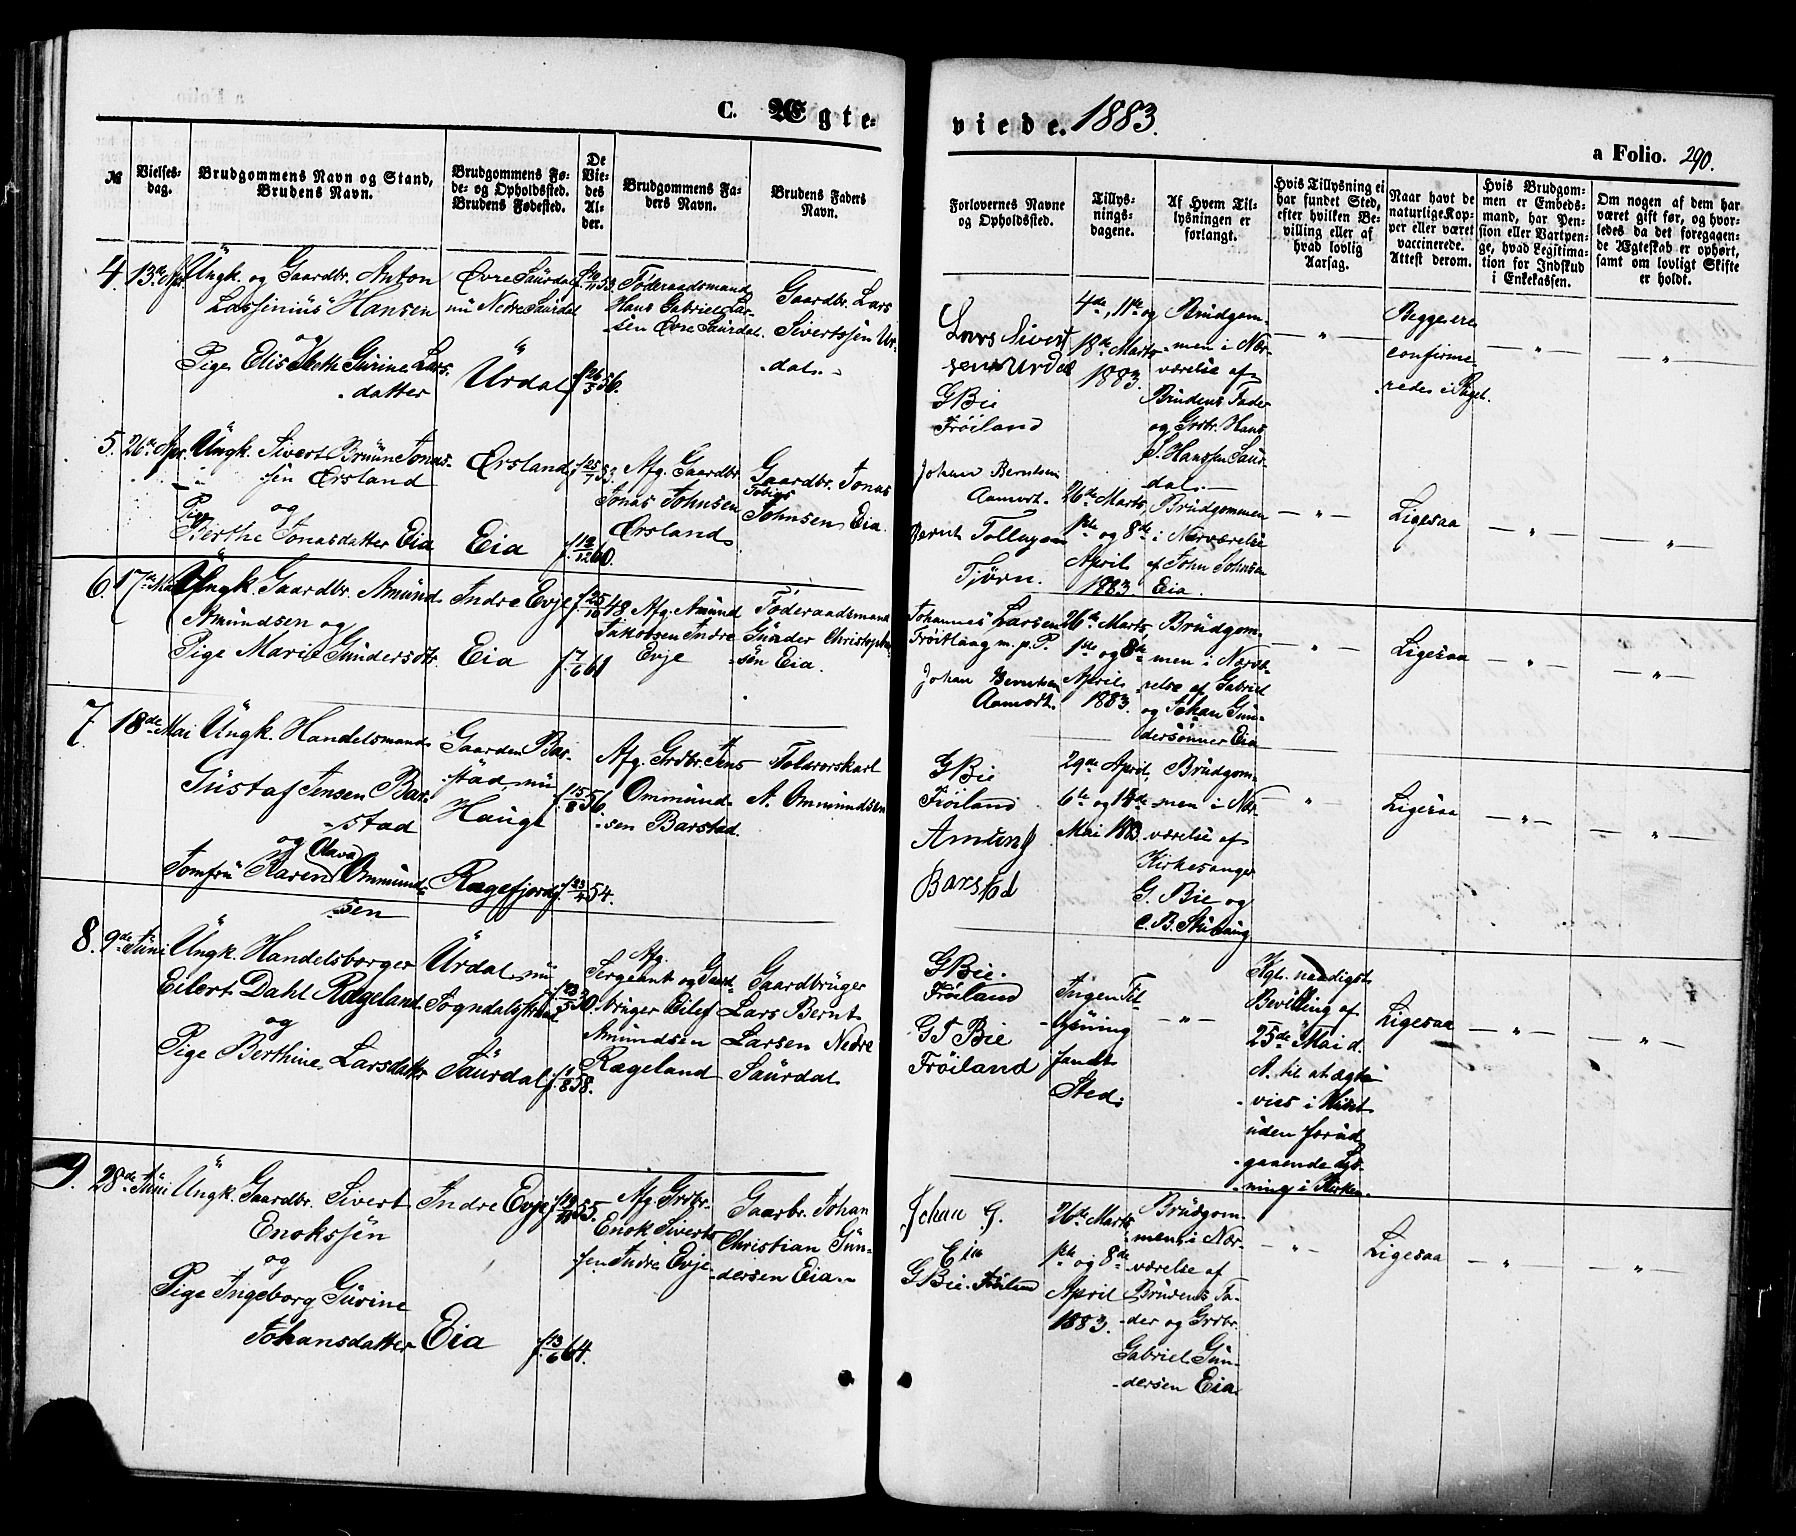 C. Ægte-
viede. 1883.
a Folio. 290.
№
Vielses-
dag.
Brudgommens Navn og Stand,
Brudens Navn.
Brudgommens Fø-
de- og Opholdssted.
Brudens Fødested.
De
Vie-
des
Al-
der.
Brudgommens Fa-
ders Navn.
Brudens Faders
Navn.
Forlovernes Navne
og Opholdssted.
Tillys-
nings-
dagene.
Af Hvem Til-
lysningen er
forlangt.
Hvis Tillysning ei
har fundet Sted,
efter hvilken Be-
villing eller af
hvad lovlig
Aarsag.
Naar havt de
naturlige Kop-
per eller været
vaccinerede.
Attest derom.
Hvis Brudgom-
men er Embeds-
mand, har Pen-
sion eller Vartpen-
ge, hvad Legitima-
tion for Indskud
i Enkekassen.
Om nogen af dem har
været gift før, og hvor-
ledes da det foregaaen-
de Ægteskab er ophørt,
samt om lovligt Skifte
er holdt.
4. 13de Apr.
Ungk. og Gaardbr. Anton
Hansen
og
Pige Elisabeth Gurine Lars-
datter
Øvre Saurdal
nu Nedre Saurdal
Urdal
f. 26/5 56.
Føderaadsmand
Hans Gabriel Lar-
sen Øvre Saurdal.
Gaardbr. Lars
Sivertssen Ur-
dal.
Lars Sivert
sen Urdal
G Bie
Frøiland
4de, 11te og
18de Marts
1883.
Brudgom-
men i Nær-
værelse af
Brudens Fader
og Grbr. Hans
S. Hanssen Saur-
dal.
Begge ere
confirme-
rede i Prgjet.
5. 26de Apr.
Ungk. Sivert Bruun Jonas-
sen Ørsland
og
Pige
Berthe Jonasdatter Eia
Ørsland
Eia
f. 25/7 53.
f. 12/12 60.
Afg. Gaardbr.
Jonas Johnsen
Ørsland
Gaardbr. Jonas
Tobias
Johnsen Eia.
Johan Berntsen
Aamodt.
Bernt Tollagsen
Tjörn.
26de Marts,
1ste og 8de
April
1883
Brudgommen
i Nærværelse
af John Johnsen
Eia.
Ligesaa
6. 17de Mai
Ungk. Gaardbr. Amund
Amundsen og
Pige Marie Gundersdtr.
Indre Evje
Eia
f. 25/10 48
f. 7/6 61
Afg. Amund
Jakobsen Indre
Evje
Føderaadsmand
Gunder Christophers-
sen Eia.
Johannes Larsen
m. p. P.
Johan Berntsen
Aamodt.
26de Marts
1ste og 8de
April
1883.
Brudgom-
men i Nærvæ-
relse af Gabriel
og Johan Gun-
dersønner Eia
Ligesaa
7. 18de Mai
Ungk. Handelsmand
Gustaf Jensen Bar-
stad
og Olava
Jomfru Karen Ommund-
sen
Gaarden Bar-
stad, nu
Hauge
Rægefjord
f. 15/8 56.
f. 23/4 54.
Afg. Grdbr. Jens
Ommund-
sen Barstad.
A. Ommundsen
G Bie
Frøiland
Amund J
Barstad
29de April,
6te og 14de
Mai 1883
Brudgom-
men i Nær-
værelse af
Kirkesanger
G. Bie og
C. B.
Ligesaa
8. 9de Juni
Ungk. Handelsborger
Eilert Dahl Rægeland
og
Pige Berthine Larsdatter
Urdal nu
Sogndalsstrand
Saurdal
f. 23/5 30.
f. 11/8 58.
Afg.
Sergeant og Gaard-
bruger Eilef
Amundsen
Rægeland
Gaardbruger
Lars Bernt
Larsen Nedre
Saurdal
G Bie.
Frøiland
G T Bie
Frøiland
Ingen Til-
lysning
fandt
Sted.
Kgl. naadigst
Bevilling af
25de Mai d.
A. til at ægte-
vies i Huset
uden forud-
gaaende Lys-
ning i Kirken.
Ligesaa
9. 28de Juni
Ungk. Gaardbr. Sivert
Enokssen
og
Pige Ingeborg Gurine
Johansdatter
Indre Evje
Eia
f. 13/6 64.
Afg. Grbr.
Enok Siverts-
sen Indre Evje
Gaarbr. Johan
Christian Gun-
dersen Eia.
Johan G.
Eia
G Bie. Frøiland
26de Marts
1ste og 8de
April
1883.
Brudgom-
men i Nær-
værelse af
Brudens Fa-
der og Grbr.
Gabriel Gun-
dersen Eia.
Ligesaa